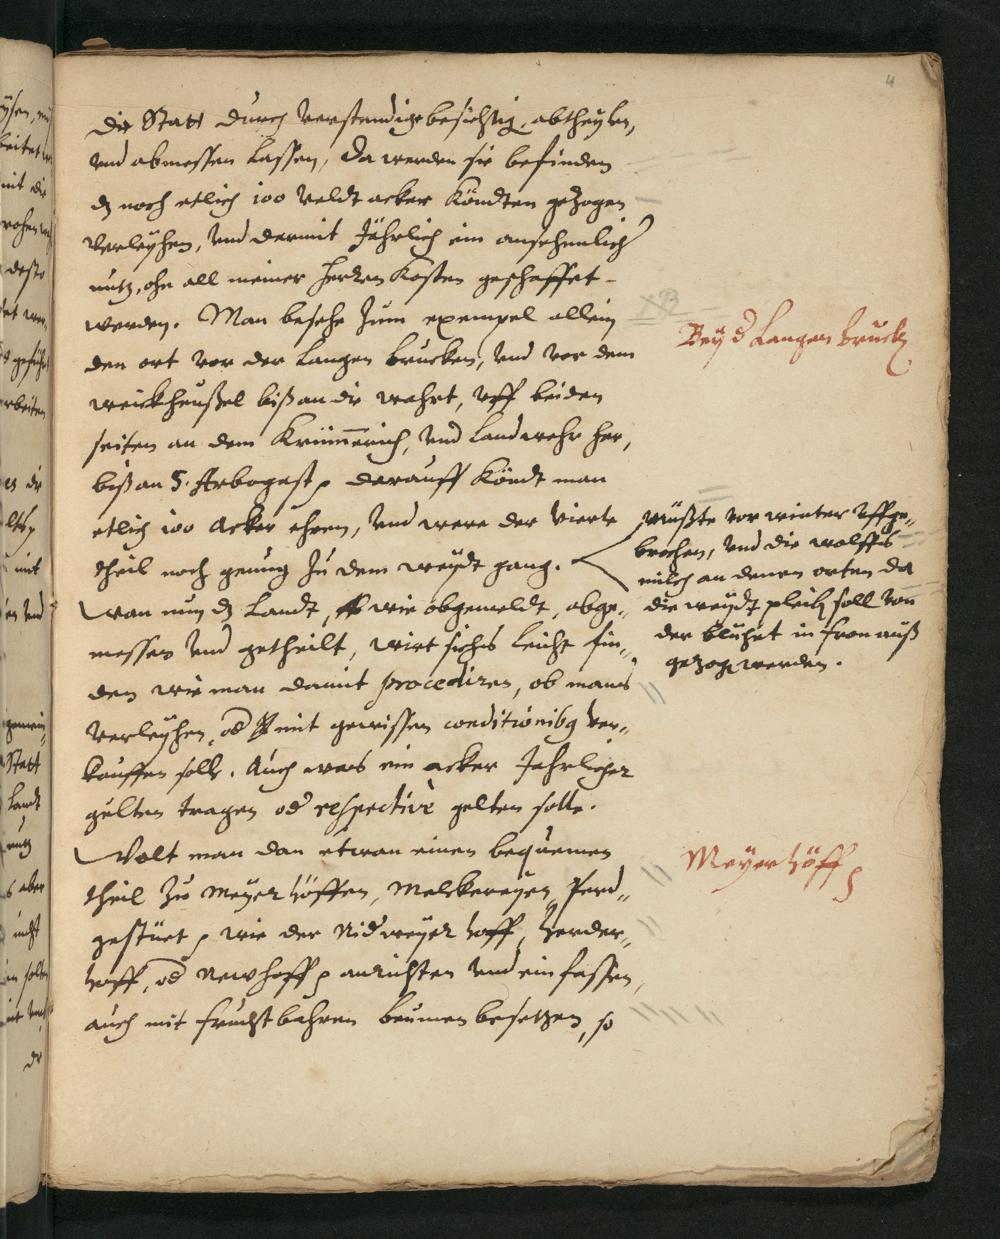 4
die Statt durch verstendige besichtig, abtheylen,
und abmessen lassen, da werden sie befinden
dz noch etlich 100 veldt acker köndten gezogen
verleyhen, und dermit Jährlich ein ansehenlich
nutz, ohn all meiner herren kosten geschaffet
werden. Man besehe zum exempel allein
den ort vor der langen brucken, und vor dem
weickheüßel biß an die wahrt, uff beiden
seiten an dem Krümmerich, und landwehr her,
biß an S. Arbogast, darauff köndt man
etlich 100 Acker ehren, und were der vierte
theil noch genug zu dem weydt gang.
wan nun dz landt, wie obgemeldt, abge„
messen und getheilt, wirt sichs leicht fin„
den wie man damit procediren, ob mans
verleyhen, od mit gewissen conditionibq ver„
kauffen solle. Auch was ein acker Jahrlicher
gülten tragen od respectivè gelten solle.
Wolt man dan etwan einen bequemen
theil zu Meyer höffen, Melckereyen, Pferd„
gestüet, wie der Nidweyer hoff, Herder„
hoff, od Newhoff, anrichten und einfassen,
auch mit fruchtbahren beümen besetzen, so
Bey d Langen bruck
müßte vor winter uffge„
brochen, und die wolffs
milch an denen orten da
die weydt pleib soll von
der blühet in fron auß
gezog werden.
Meyer höff